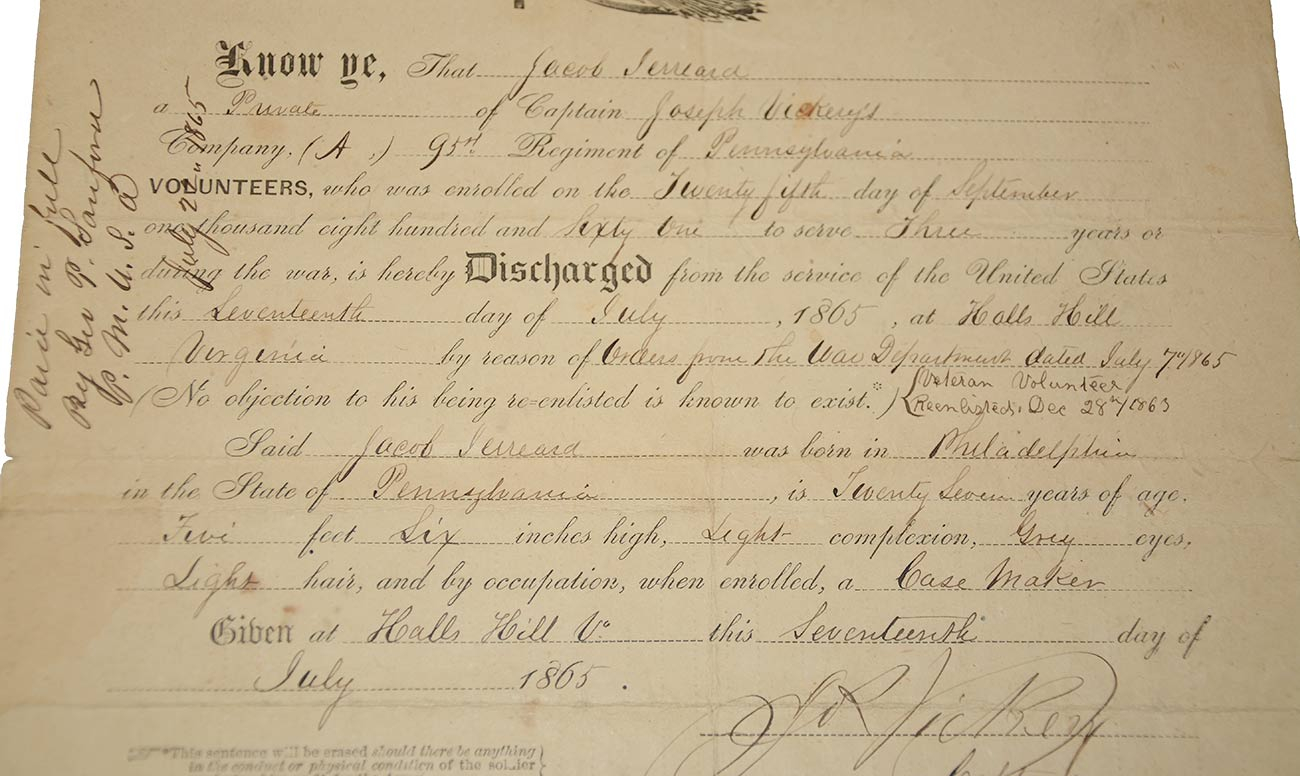 Know ye, That Jacob Jerreard
a Private of Captain Joseph Vickery's
Company, (A,) 95th Regiment of Pennsylvania
VOLUNTEERS, who was enrolled on the Twenty fifth day of September
one thousand eight hundred and Sixty One to serve Three years or
during the war, is hereby Discharged from the service of the United States
this Seventeenth day of July, 1865, at Halls Hill
Virginia by reason of Orders from The War Department dated July 7th/1865
(No objection to his being re-enlisted is known to exist.*) Veteran Volunteer
Reenlisted Dec 28th/1863
Said Jacob Jerreard was born in Philadelphia
in the State of Pennsylvania, is Twenty Seven years of age,
Five feet Six inches high, Light complexion, Grey eyes,
Light hair, and by occupation, when enrolled, a Case Maker
Given at Halls Hill Va this Seventeenth day of
July 1865.
Jos Vickery
Capt
*This sentence will be erased should there be anything
in the conduct or physical condition of the soldier
Paid in full
By Geo P. Sanford
P. M. U. S. A
July 22nd 1865